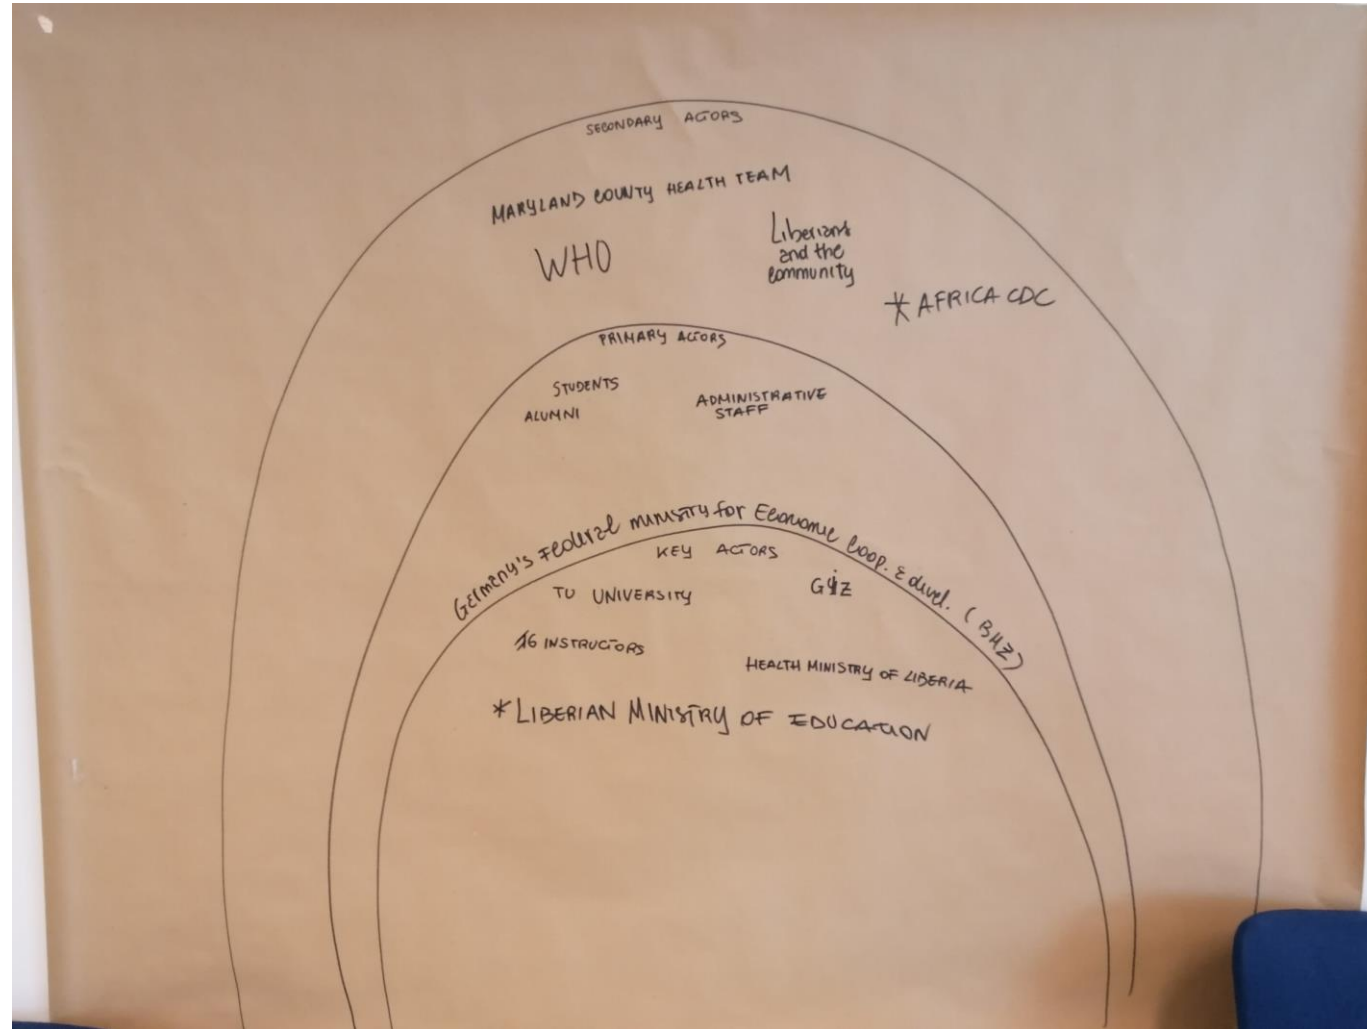 SECONDARY ACTORS
MARYLAND COUNTY HEALTH TEAM
WHO
Liberians
and the
community
* AFRICA CDC
PRIMARY ACTORS
STUDENTS
ALUMNI
ADMINISTRATIVE
STAFF
Germany's Federal ministry for Economic Coop. & devel. (BMZ)
KEY ACTORS
TU UNIVERSITY
GIZ
16 INSTRUCTORS
HEALTH MINISTRY OF LIBERIA
* LIBERIAN MINISTRY OF EDUCATION